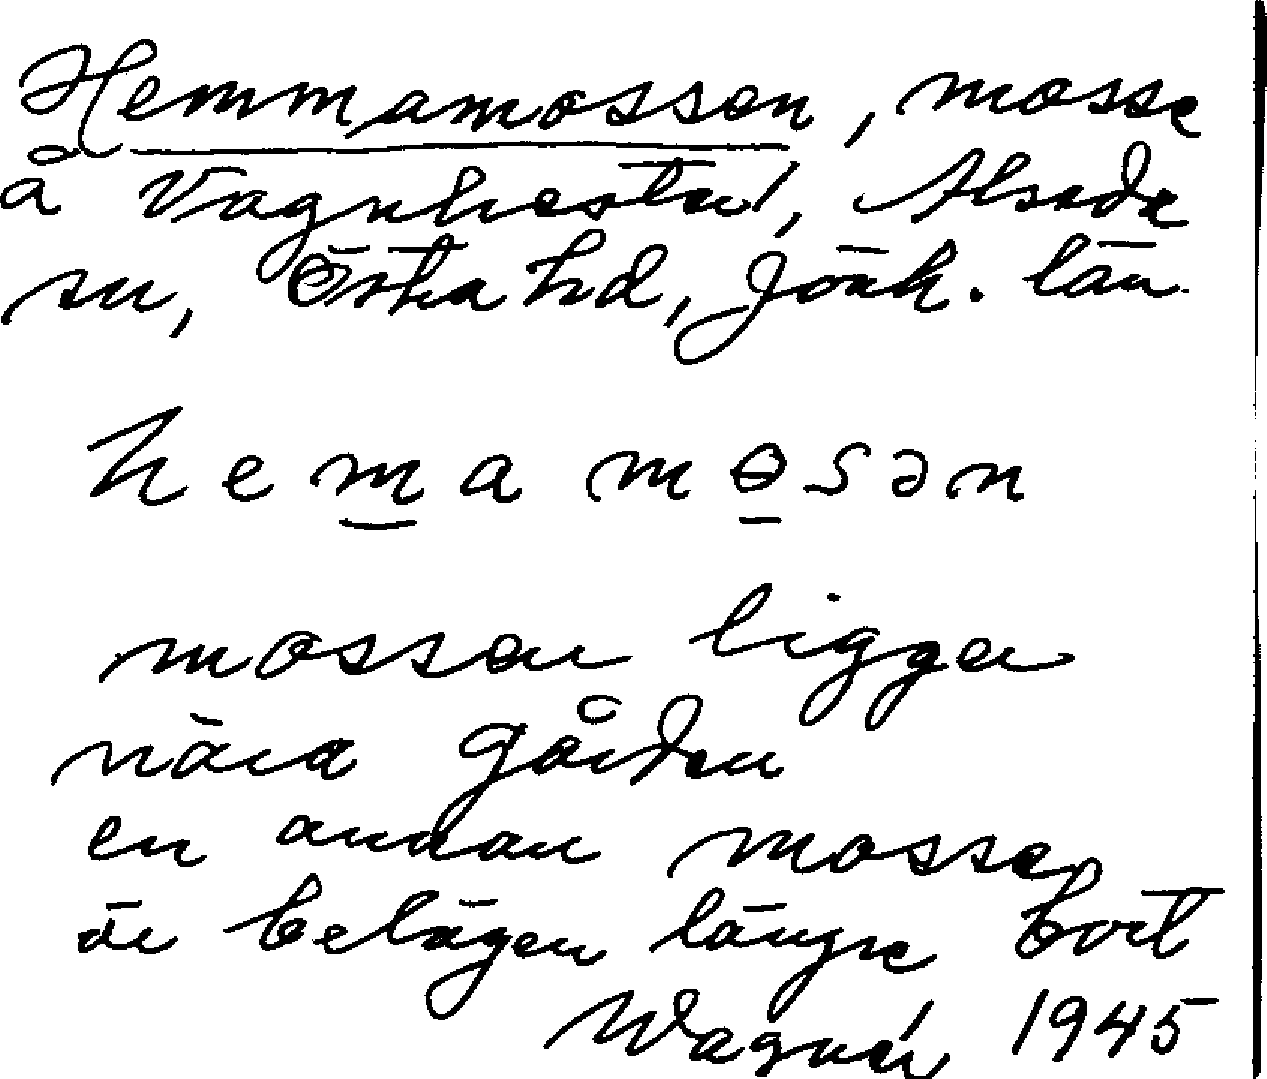 Hemmamossen, mosse
å Vagnhester, Alseda
sn, Östra hd, Jönk. län.
hem̲amɵ̲sən
mossen ligger
nära gården
en annan mosse
är belägen längre bort
Wagnér 1945